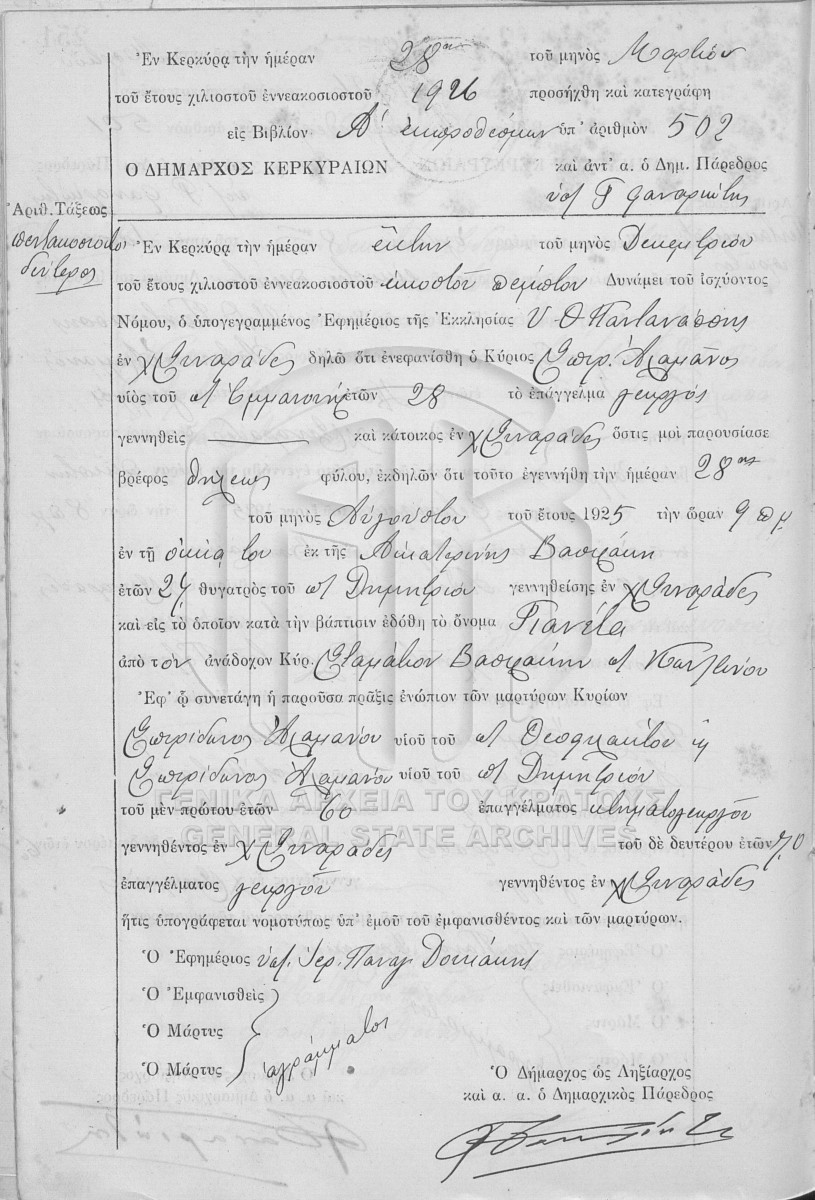 Ἐν Κερκύρᾳ τὴν ἡμέραν 28ην τοῦ μηνὸς Μαρτίου
τοῦ ἔτους χιλιοστοῦ ἐννεακοσιοστοῦ 1926 προσήχθη καὶ κατεγράφη
εἰς Βιβλίον Α' ἐκπροθέσμων ὑπ' ἀριθμὸν 502
Ο ΔΗΜΑΡΧΟΣ ΚΕΡΚΥΡΑΙΩΝ καὶ ἀντ' α. ὁ Δημ. Πάρεδρος
Ἀριθ. Τάξεως
πεντακοσιοστὸς
δεύτερος
Ἐν Κερκύρᾳ τὴν ἡμέραν ἕκτην τοῦ μηνὸς Δεκεμβρίου
τοῦ ἔτους χιλιοστοῦ ἐννεακοσιοστοῦ εἰκοστοῦ πέμπτου Δυνάμει τοῦ ἰσχύοντος
Νόμου, ὁ ὑπογεγραμμένος Ἐφημέριος τῆς Ἐκκλησίας Υ. Θ. Παντανάσσης
ἐν χ Σιναράδες δηλῶ ὅτι ἐνεφανίσθη ὁ Κύριος Σπυρ. Ἀλαμάνος
υἱὸς τοῦ Ἐμμανουὴλ ἐτῶν 28 τὸ ἐπάγγελμα γεωργός
γεννηθεὶς καὶ κάτοικος ἐν χ Σιναράδες ὅστις μοι παρουσίασε
βρέφος θήλεως φύλου, ἐκδηλῶν ὅτι τοῦτο ἐγεννήθη τὴν ἡμέραν 28ην
τοῦ μηνὸς Αὐγούστου τοῦ ἔτους 1925 τὴν ὥραν 9 πμ
ἐν τῇ οἰκίᾳ του ἐκ τῆς Αἰκατερίνης Βασιλάκη
ἐτῶν 24 θυγατρὸς τοῦ Δημητρίου γεννηθείσης ἐν χ Σιναράδες
καὶ εἰς τὸ ὁποῖον κατὰ τὴν βάπτισιν ἐδόθη τὸ ὄνομα Γιανέτα
ἀπὸ τὸν ἀνάδοχον Κύρ. Σταμάτιον Βασιλάκην
Ἐφ' ᾧ συνετάγη ἡ παροῦσα πρᾶξις ἐνώπιον τῶν μαρτύρων Κυρίων
Σπυρίδωνος Ἀλαμάνου υἱοῦ τοῦ Θεοφυλάκτου
Σπυρίδωνος Ἀλαμάνου υἱοῦ τοῦ Δημητρίου
τοῦ μὲν πρώτου ἐτῶν 60 ἐπαγγέλματος κτηματογεωργοῦ
ΓΕΝΙΚΑ ΑΡΧΕΙΑ ΤΟΥ ΚΡΑΤΟΥΣ
GENERAL STATE ARCHIVES
γεννηθέντος ἐν χ Σιναράδες τοῦ δὲ δευτέρου ἐτῶν 70
ἐπαγγέλματος γεωργοῦ γεννηθέντος ἐν χ Σιναράδες
ἥτις ὑπογράφεται νομοτύπως ὑπ' ἐμοῦ τοῦ ἐμφανισθέντος καὶ τῶν μαρτύρων.
Ὁ Ἐφημέριος ὑπ. Ἱερ. Παναγ
Ὁ Ἐμφανισθεὶς
Ὁ Μάρτυς
Ὁ Μάρτυς ἀγράμματοι
Ὁ Δήμαρχος ὡς Ληξίαρχος
καὶ α. α. ὁ Δημαρχικὸς Πάρεδρος